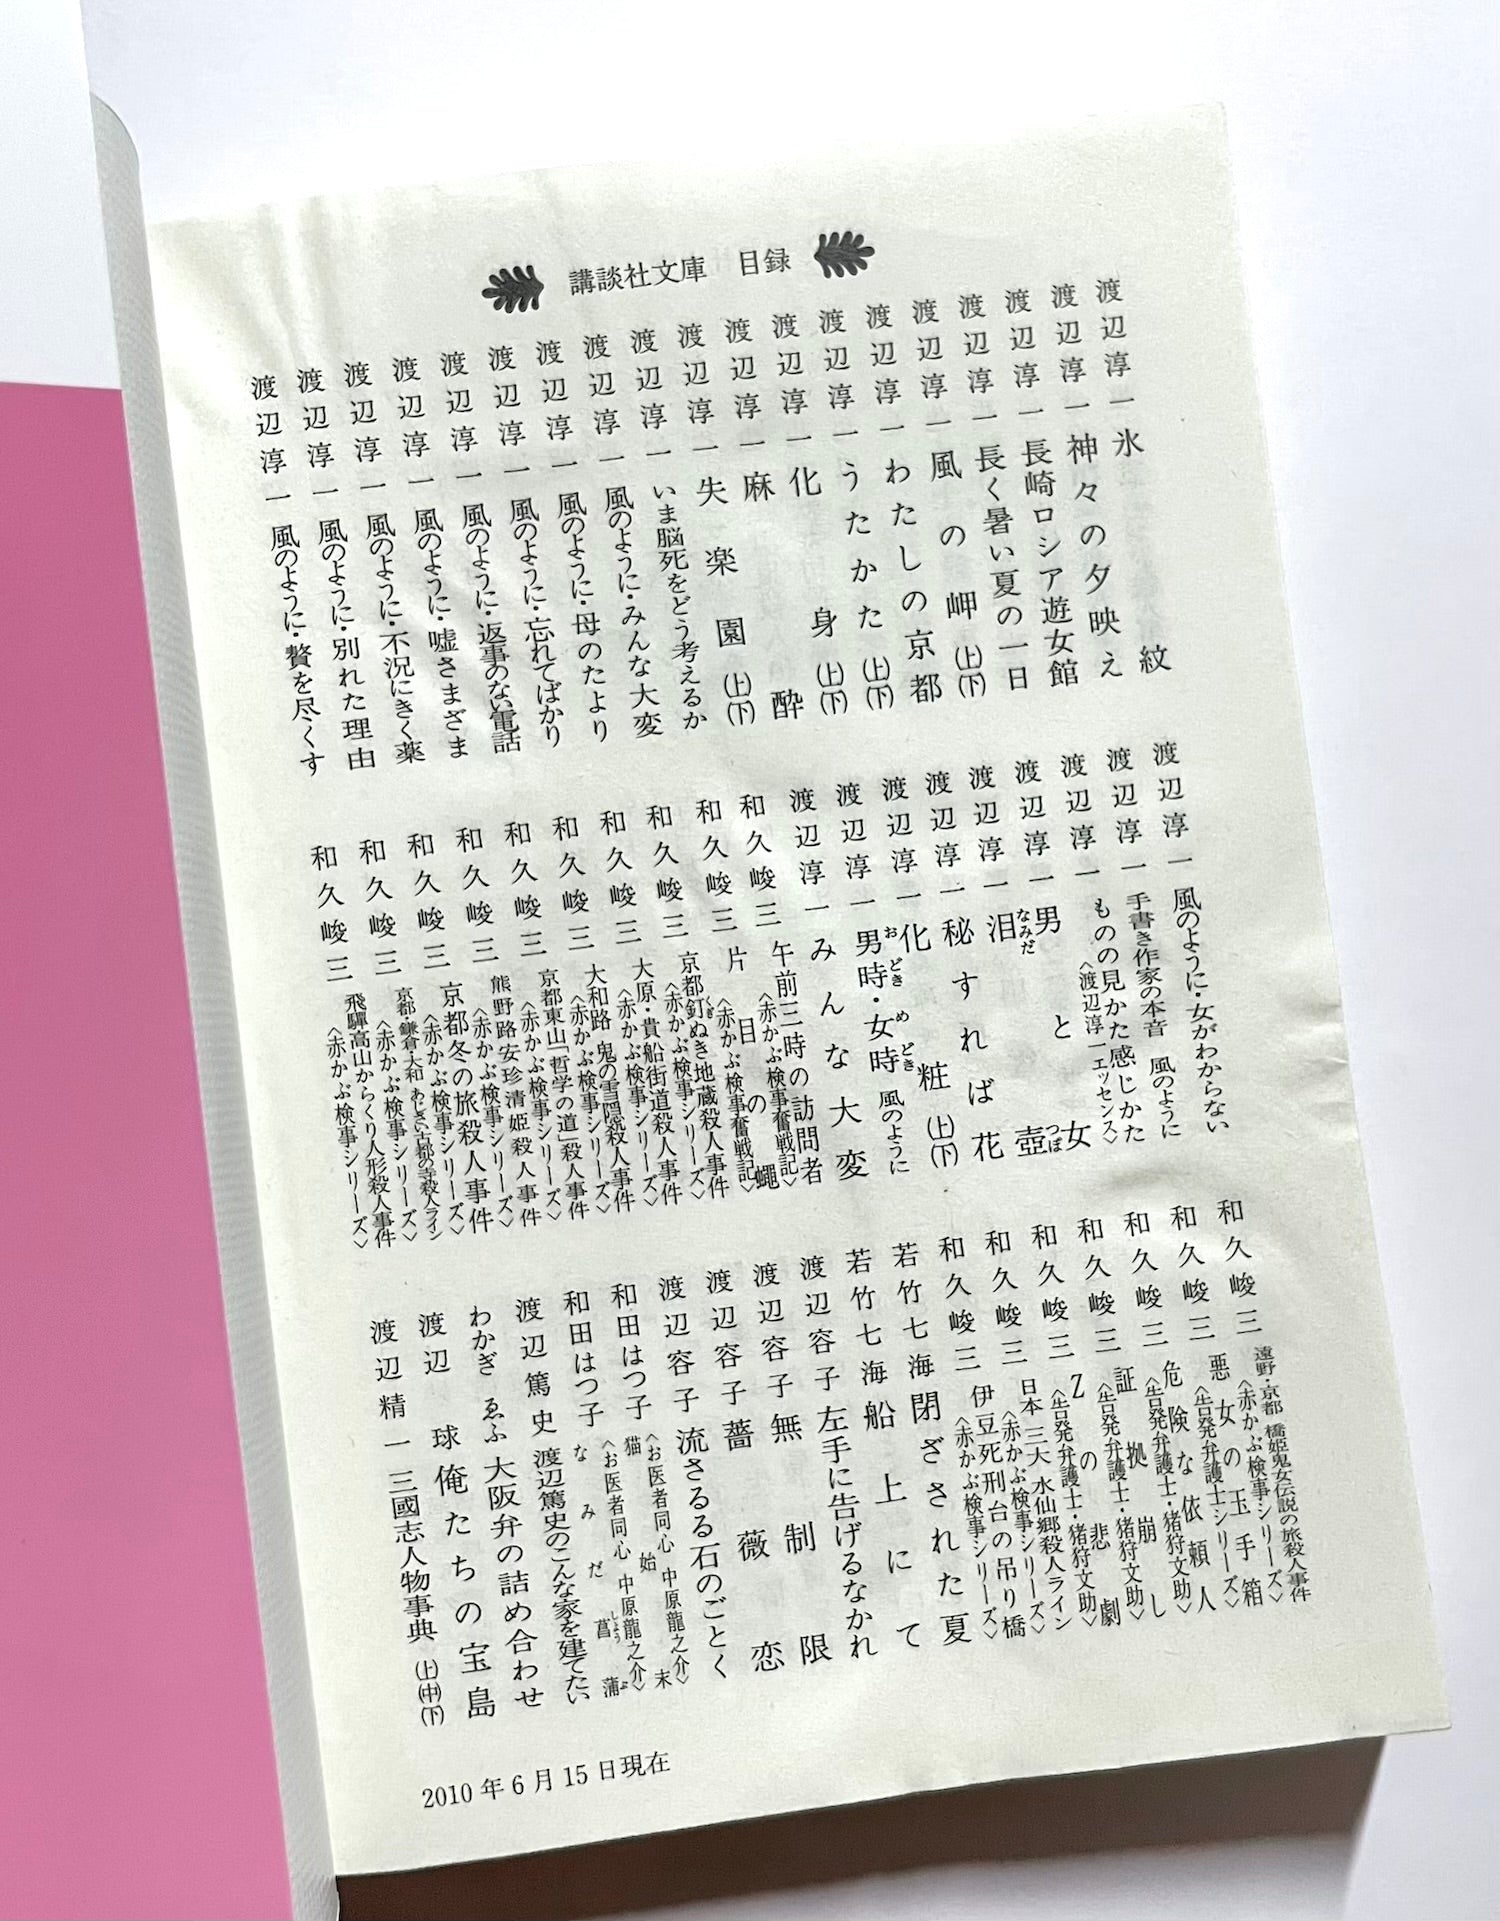 講談社文庫 目録
渡辺淳一 氷紋
渡辺淳一 神々の夕映え
渡辺淳一 長崎ロシア遊女館
渡辺淳一 長く暑い夏の一日
渡辺淳一 風の岬(上)(下)
渡辺淳一 わたしの京都
渡辺淳一 うたかた(上)(下)
渡辺淳一 化身(上)(下)
渡辺淳一 麻酔
渡辺淳一 失楽園(上)(下)
渡辺淳一 いま脳死をどう考えるか
渡辺淳一 風のように・みんな大変
渡辺淳一 風のように・母のたより
渡辺淳一 風のように・忘れてばかり
渡辺淳一 風のように・返事のない電話
渡辺淳一 風のように・嘘さまざま
渡辺淳一 風のように・不況にきく薬
渡辺淳一 風のように・別れた理由
渡辺淳一 風のように・贅を尽くす
渡辺淳一 風のように・女がわからない
渡辺淳一 手書き作家の本音 風のように
渡辺淳一 ものの見かた感じかた
〈渡辺淳一エッセンス〉
渡辺淳一 男と女
渡辺淳一 泪壺
渡辺淳一 秘すれば花
渡辺淳一 化粧(上)(下)
渡辺淳一 男時・女時 風のように
渡辺淳一 みんな大変
和久峻三 午前三時の訪問者
〈赤かぶ検事奮戦記〉
和久峻三 片目の蠅
〈赤かぶ検事奮戦記〉
和久峻三 京都釘ぬき地蔵殺人事件
〈赤かぶ検事シリーズ〉
和久峻三 大原・貴船街道殺人事件
〈赤かぶ検事シリーズ〉
和久峻三 大和路 鬼の雪隠殺人事件
〈赤かぶ検事シリーズ〉
和久峻三 京都東山「哲学の道」殺人事件
〈赤かぶ検事シリーズ〉
和久峻三 熊野路安珍清姫殺人事件
〈赤かぶ検事シリーズ〉
和久峻三 京都冬の旅殺人事件
〈赤かぶ検事シリーズ〉
和久峻三 京都・鎌倉・大和 あじさい古都の寺殺人ライン
〈赤かぶ検事シリーズ〉
和久峻三 飛驒高山からくり人形殺人事件
〈赤かぶ検事シリーズ〉
和久峻三 遠野・京都 橋姫鬼女伝説の旅殺人事件
〈赤かぶ検事シリーズ〉
和久峻三 悪女の玉手箱
〈告発弁護士シリーズ〉
和久峻三 危険な依頼人
〈告発弁護士・猪狩文助〉
和久峻三 証拠崩し
〈告発弁護士・猪狩文助〉
和久峻三 Zの悲劇
〈告発弁護士・猪狩文助〉
和久峻三 日本三大水仙郷殺人ライン
〈赤かぶ検事シリーズ〉
和久峻三 伊豆死刑台の吊り橋
〈赤かぶ検事シリーズ〉
若竹七海 閉ざされた夏
若竹七海 船上にて
渡辺容子 左手に告げるなかれ
渡辺容子 無制限
渡辺容子 薔薇恋
渡辺容子 流さるる石のごとく
和田はつ子 猫始末
〈お医者同心 中原龍之介〉
和田はつ子 なみだ菖蒲
〈お医者同心 中原龍之介〉
渡辺篤史 渡辺篤史のこんな家を建てたい
わかぎゑふ 大阪弁の詰め合わせ
渡辺球 俺たちの宝島
渡辺精一 三國志人物事典(上)(中)(下)
2010年6月15日現在